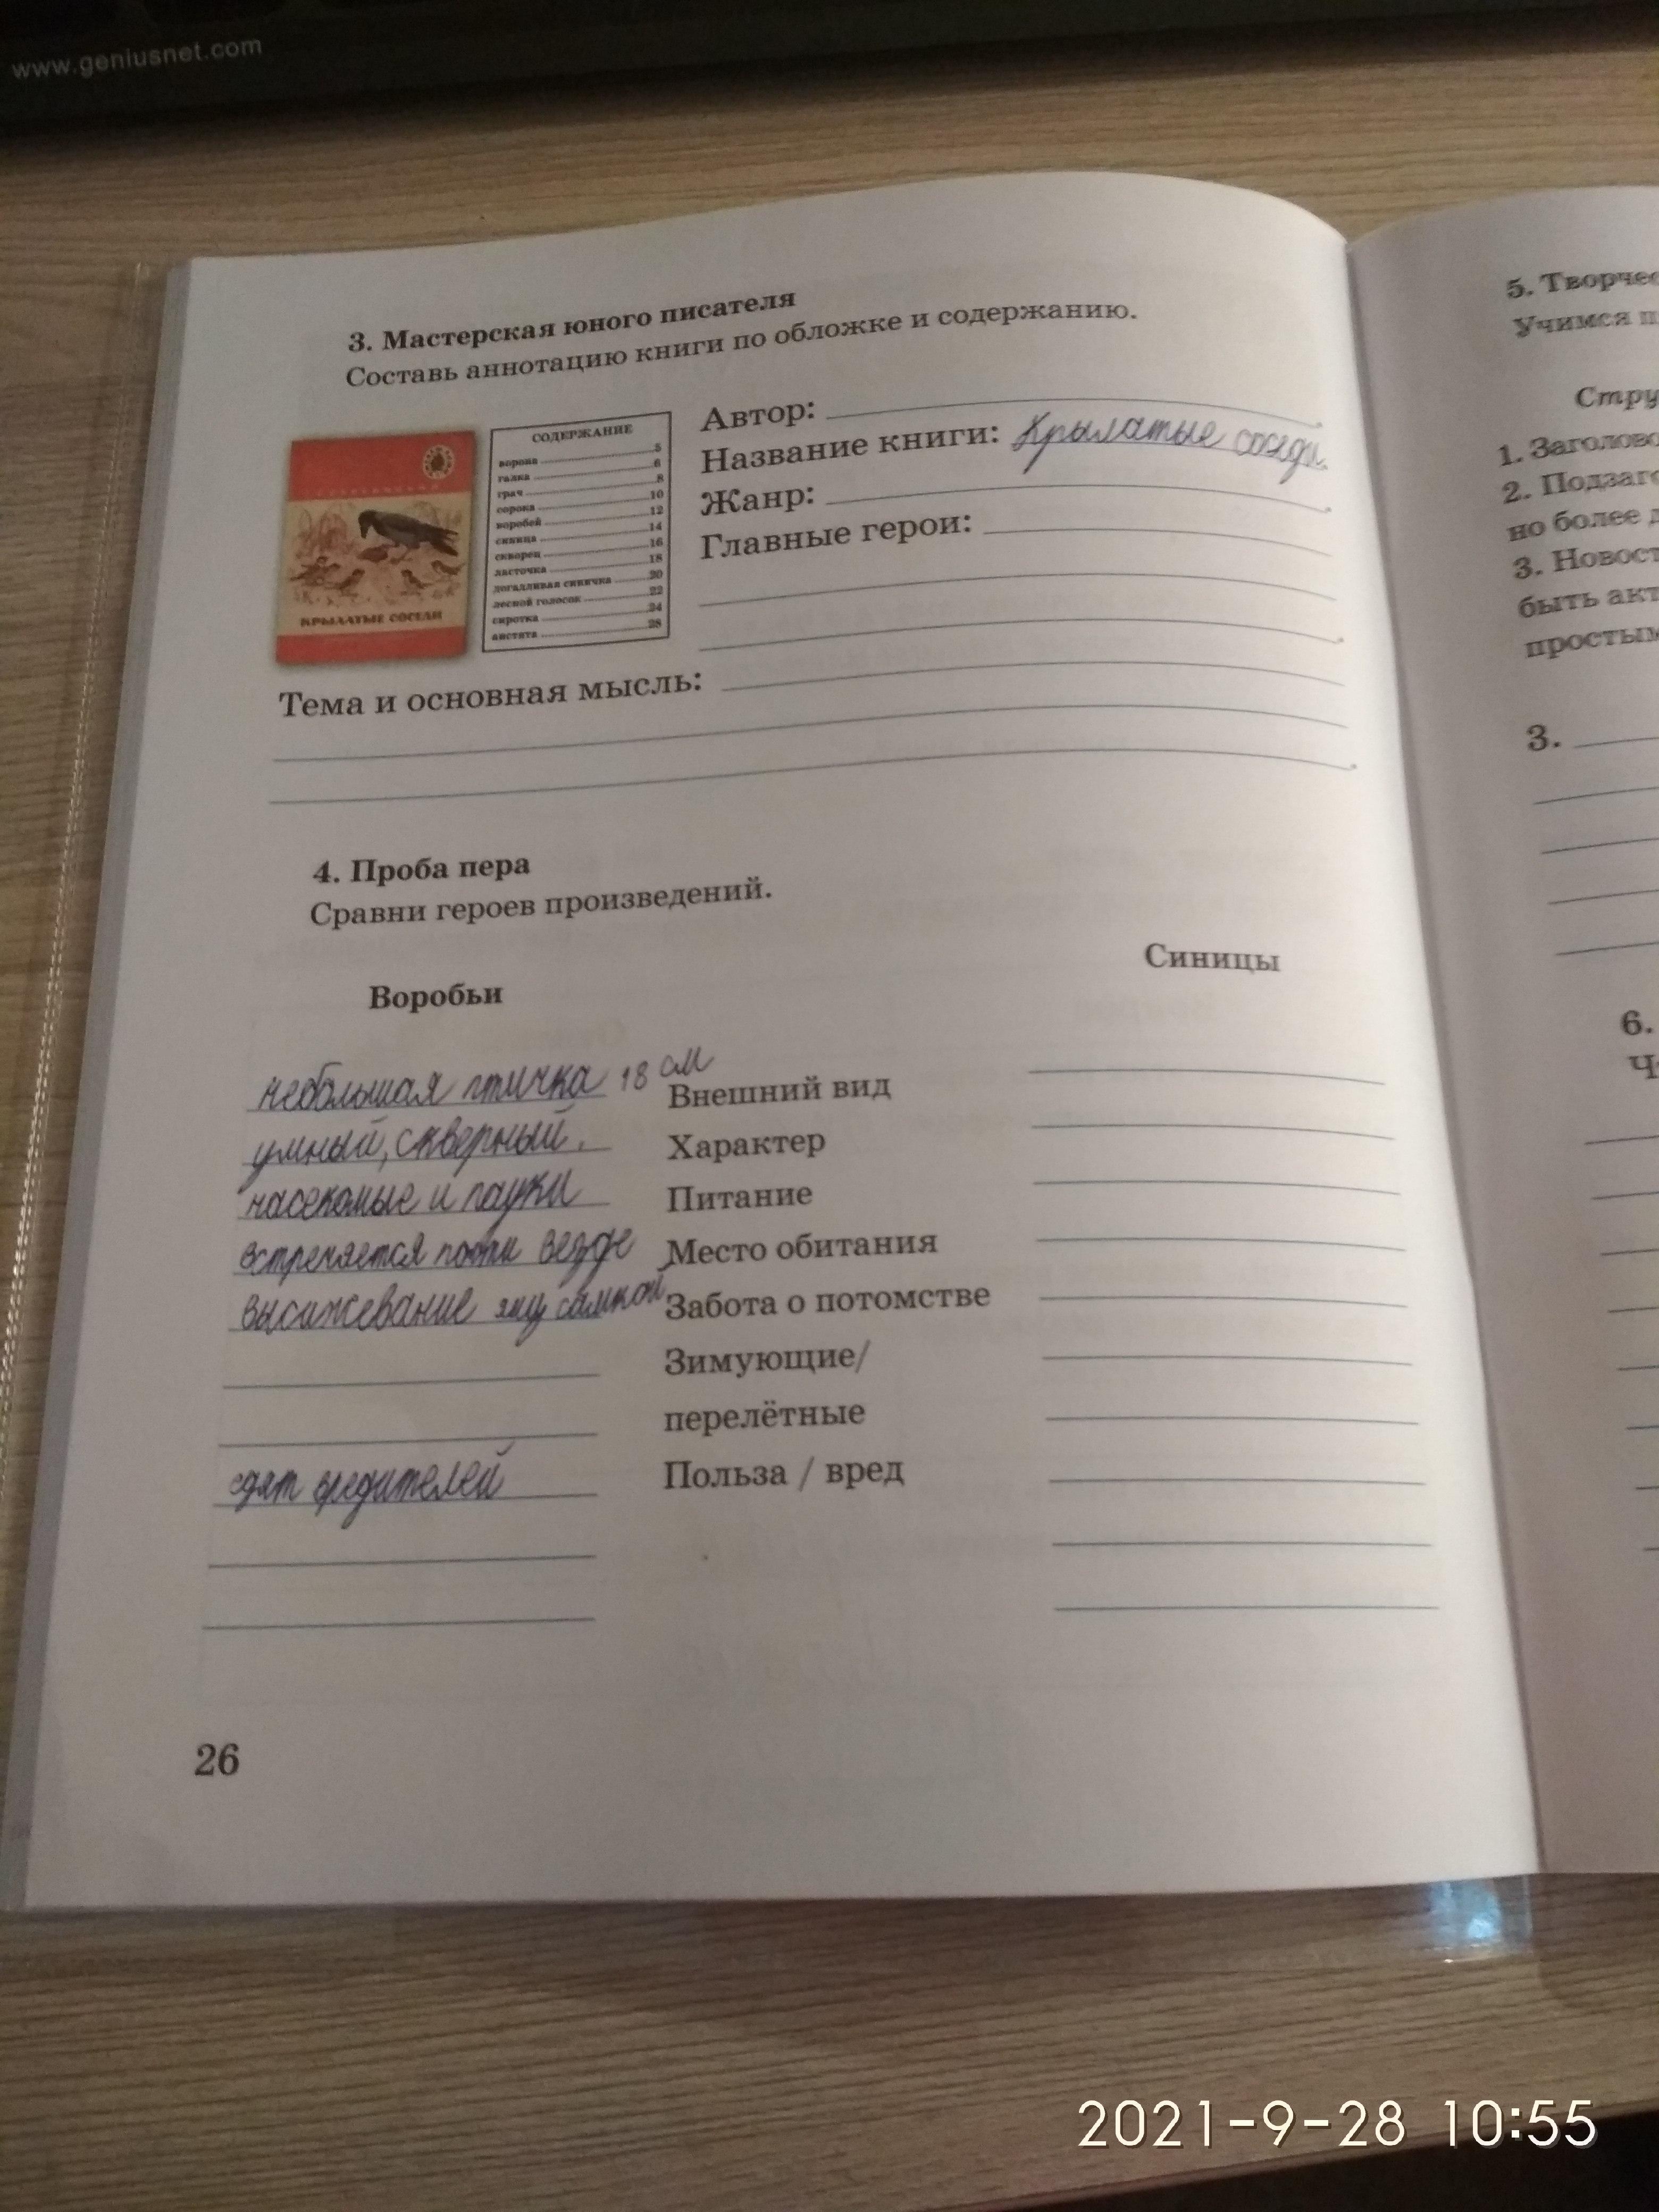 www.geniusnet.com
3. Мастерская юного писателя
Составь аннотацию книги по обложке и содержанию.
СОДЕРЖАНИЕ
ворона 5
галка 6
грач 8
сорока 10
воробей 12
синица 14
скворец 16
ласточка 18
догадливая синичка 20
лесной голосок 22
сиротка 24
аистята 28
КРЫЛАТЫЕ СОСЕДИ
Автор:
Название книги: Крылатые соседи
Жанр:
Главные герои:
Тема и основная мысль:
4. Проба пера
Сравни героев произведений.
Воробьи Синицы
небольшая птичка 18 см Внешний вид
умный, скверный. Характер
насекомые и пауки Питание
встречяется почти везде Место обитания
высижевание яиц самкой Забота о потомстве
Зимующие/
перелётные
едят вредителей Польза / вред
26
5. Творчес
Учимся п
Стру
1. Заголово
2. Подзаго
но более д
3. Новост
быть акт
простым
3.
6.
Ч
2021-9-28 10:55